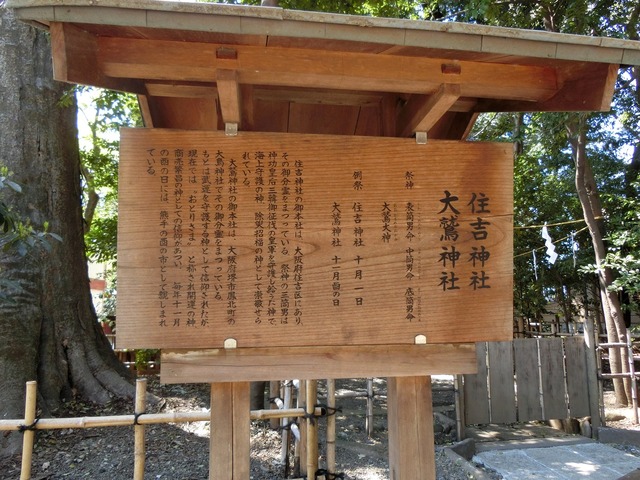 住吉神社
大鷲神社
祭神　表筒男命　中筒男命　底筒男命
大鷲大神
例祭　住吉神社　十月一日
大鷲神社　十二月酉の日
住吉神社の御本社は、大阪府住吉区にあり、
その御分霊をまつっている。祭神の三筒男は
神功皇后三韓御征伐の皇軍を守護し給うた神で
海上守護の神、除災招福の神として崇敬せら
れている。
大鷲神社の御本社は、大阪府堺市鳳北町の
大鳥神社でその御分霊をまつっている。
もとは武運を守護する神として信仰されたが
現在では「おとりさま」と称され開運の神
商売繁昌の神としての信仰があつい。毎年十一月
の酉の日には、熊手の酉の市として親しまれ
ている。